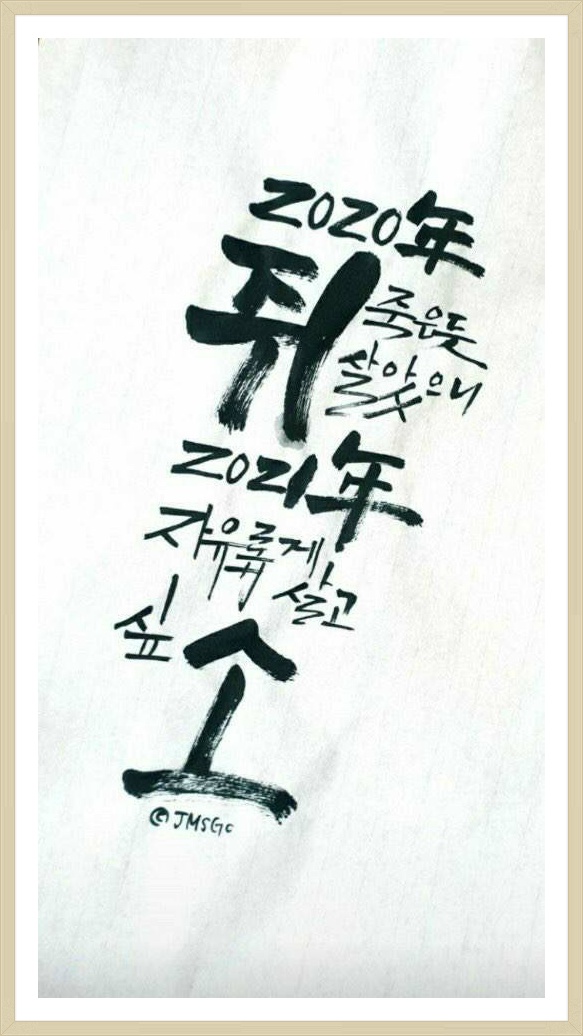 2020年
쥐 죽은듯
살았으니
2021年
자유롭게
살고
싶소
@JMSGc